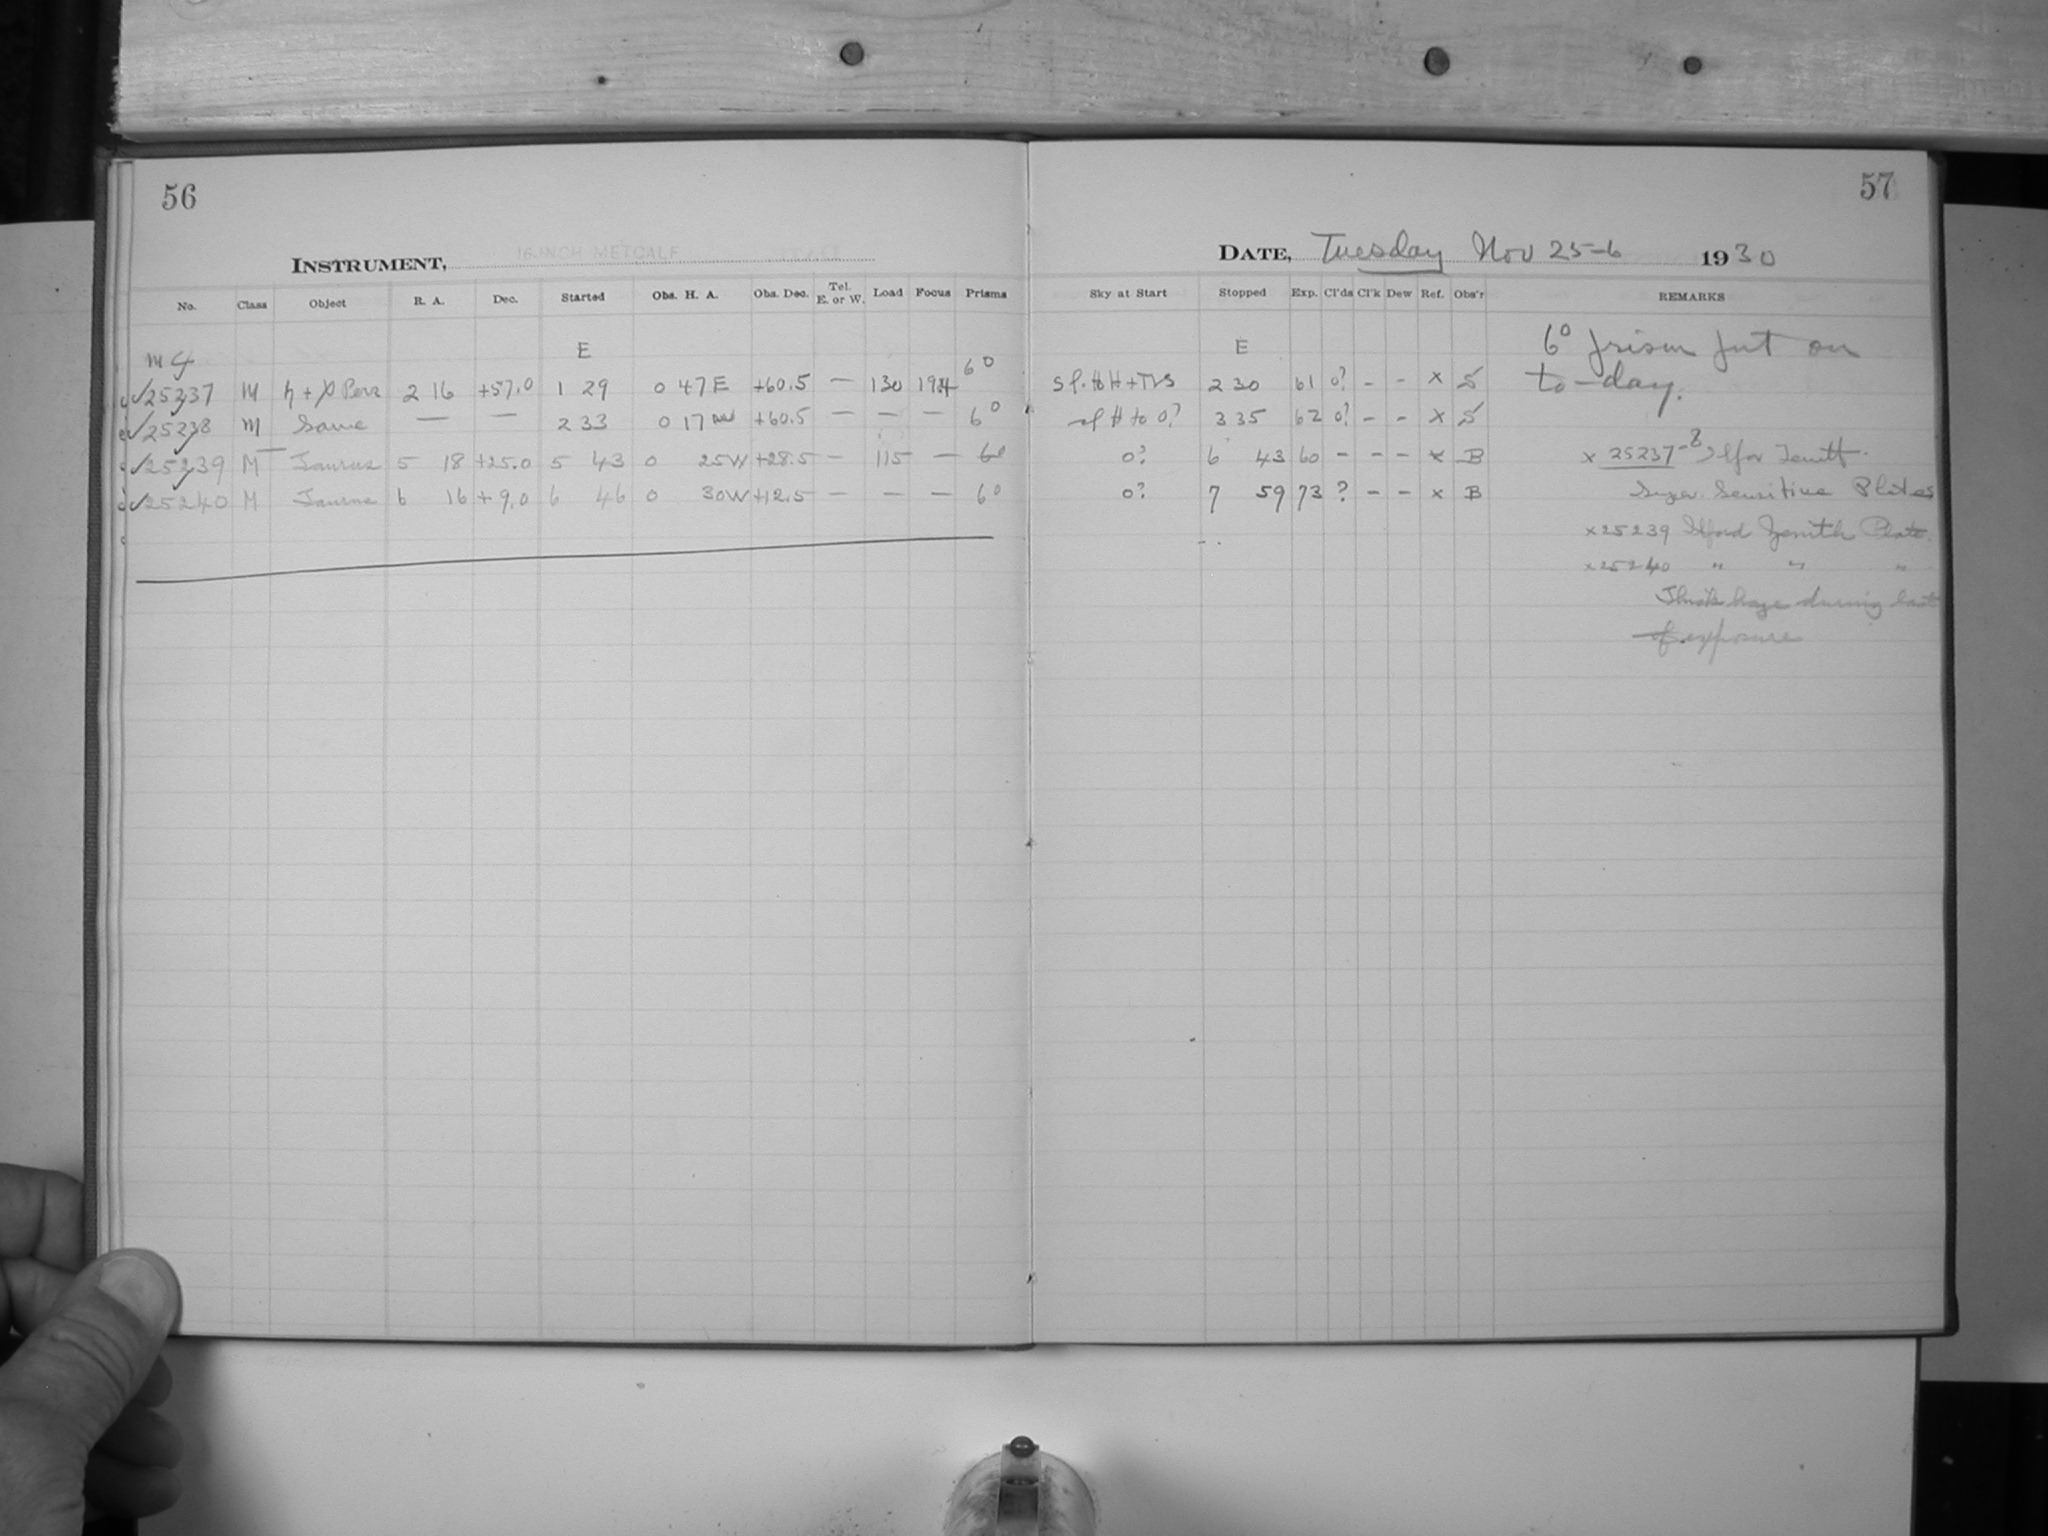 56
INSTRUMENT, 16-INCH METCALF
No. Class Object R. A. Dec. Started Obs. H. A. Obs. Dec. Tel. E. or W. Load Focus Prisms
E
MC 6°
✓25237 M h + χ Pers 2 16 +57.0 1 29 0 47 E +60.5 — 130 19.4
✓25238 M Same — — 2 33 0 17 W +60.5 — — — 6°
✓25239 M Taurus 5 18 +25.0 5 43 0 25W +28.5 — 115 — 6°
✓25240 M Taurus 6 16 +9.0 6 46 0 30W +12.5 — — — 6°
57
DATE, Tuesday Nov 25-6 1930
Sky at Start Stopped Exp. Cl'ds Cl'k Dew Ref. Obs'r REMARKS
E 6° prism put on
2 30 61 0? - - x S to-day.
H to 0? 3 35 62 0? - - x S
0? 6 43 60 - - - x B x 25237-8
0? 7 59 73 ? - - x B Super Sensitive Plates
x25239 Ilford Zenith Plate
x25240 " " "
Thick haze during last
of exposure